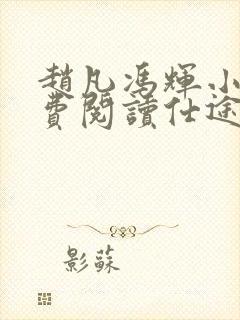 趙凡馮輝小
費閱讀仕途
影蘇